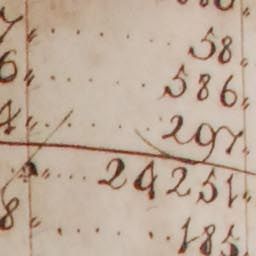 7 „ . . . . . . 58.
6 „ . . . . . 586.
4 „ . . . . . . 297.
„ . . . 24251.
8 „ . . . . . . 185.